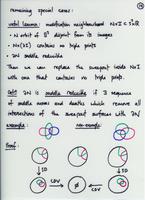 remaining special cases:
useful lemma: modification neighbourhood N×I ⊂ S³×R
• N orbit of B³ disjoint from its images
• N×{±1} contains no triple points
• ∂N middle reducible
Then we can replace the sweepout inside N×I
with one that contains no triple points.
Def: ∂N is middle reducible if ∃ sequence
of middle moves and deaths which remove all
intersections of the sweepout surfaces with ∂N.
example:
non-example:
Proof:
∅